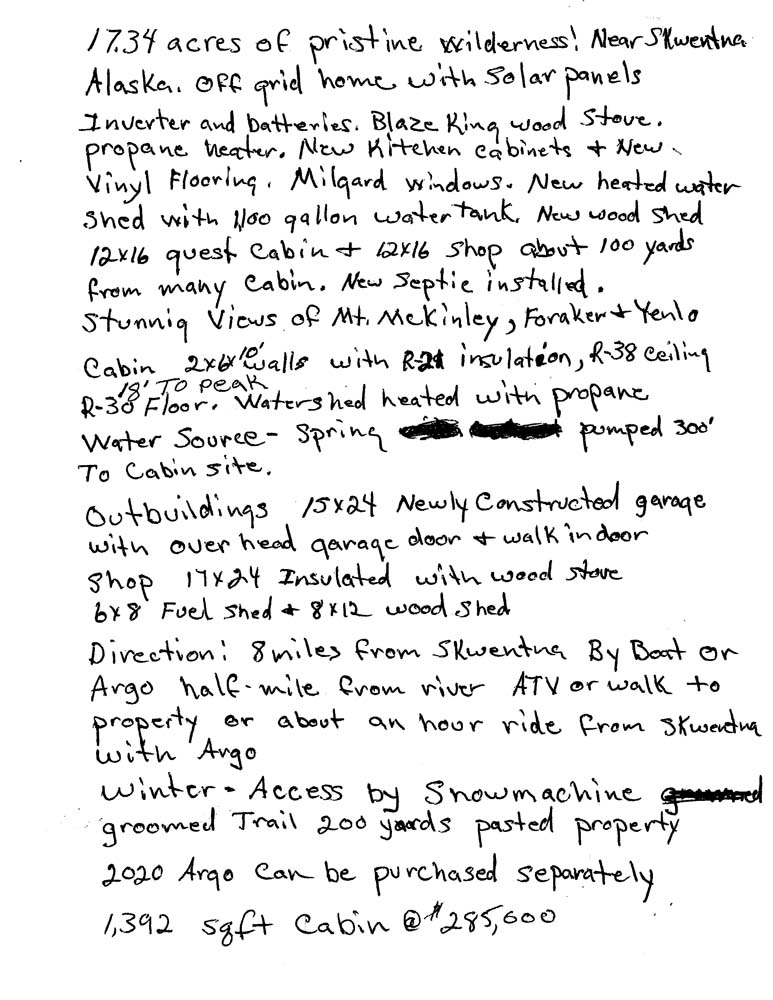 17.34 acres of pristine wilderness! Near Skwentna
Alaska. Off grid home with Solar panels
Inverter and batteries. Blaze King wood Stove.
propane heater. New Kitchen cabinets + New
Vinyl Flooring. Milgard windows. New heated water
shed with 1,100 gallon water tank. New wood shed
12x16 guest Cabin + 12x16 shop about 100 yards
from many Cabin. New Septic installed.
Stunnig Views of Mt. McKinley, Foraker + Yenlo
Cabin 2x6x10' walls with R-21 insulation, R-38 ceiling
18' To peak
R-30 Floor. Watershed heated with propane
Water Source - Spring pumped 300'
To Cabin site.
Outbuildings 15x24 Newly Constructed garage
with over head garage door + walk in door
Shop 17x24 Insulated with wood stove
6x8 Fuel shed + 8x12 wood shed
Direction: 8 miles from Skwentna By Boat or
Argo half-mile from river ATV or walk to
property or about an hour ride from Skwentna
with Argo
Winter - Access by Snowmachine
groomed Trail 200 yards pasted property
2020 Argo Can be purchased separately
1,392 sqft Cabin @ $285,000